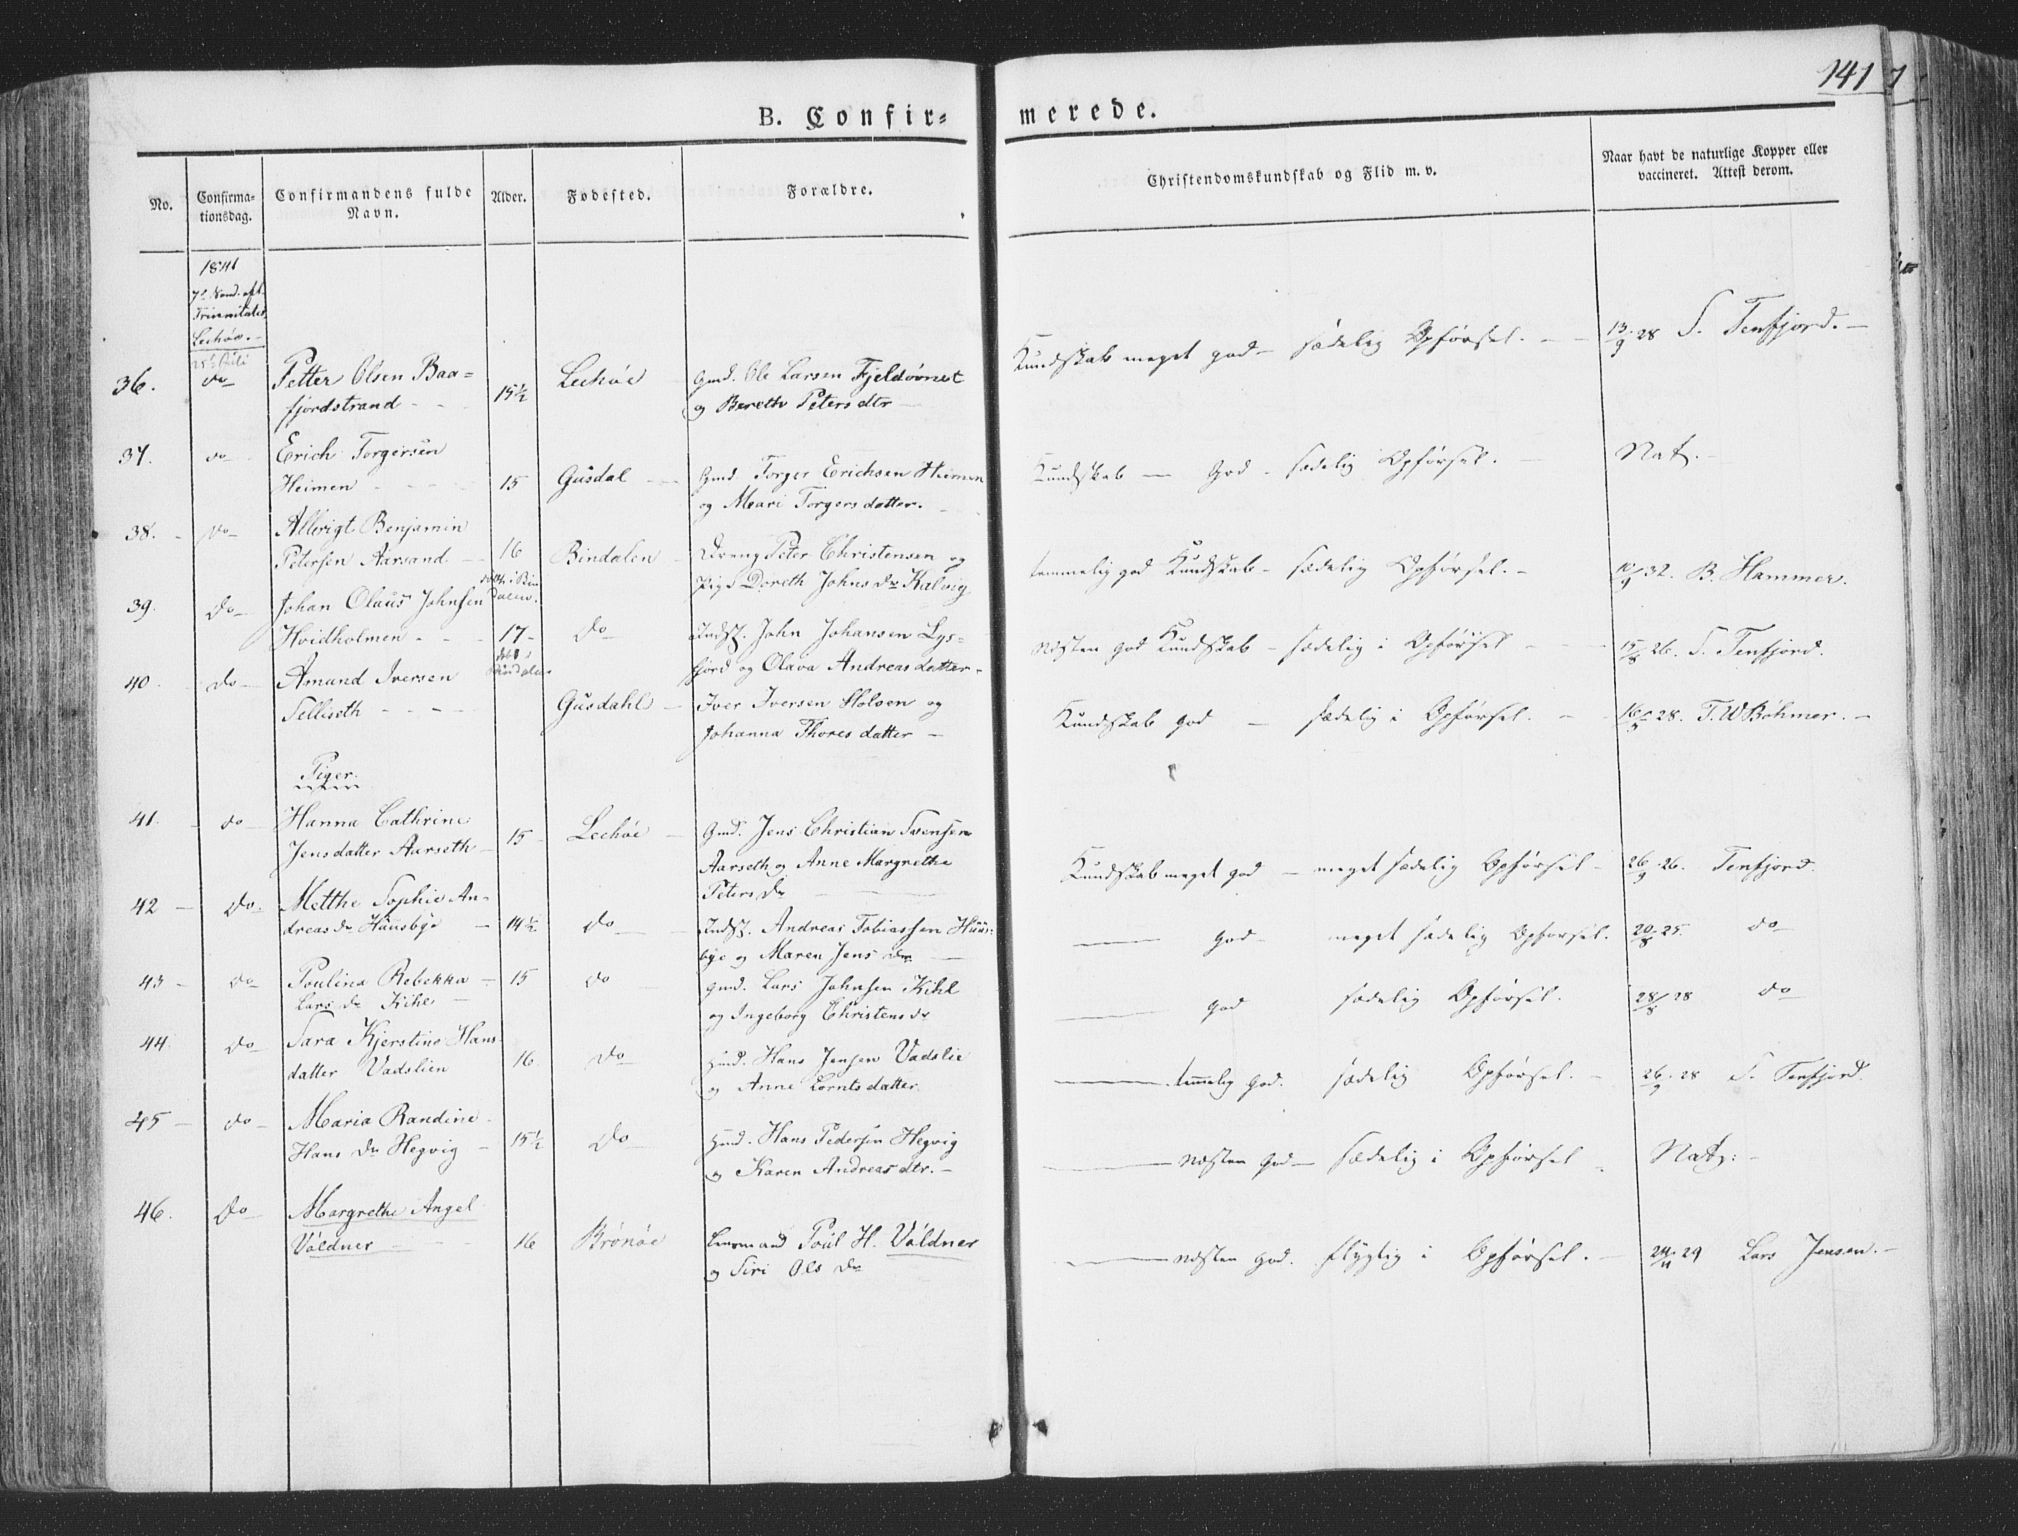 141
7
B. Confir=
merede.
No.
Confirma-
tionsdag.
Confirmandens fulde
Navn.
Alder.
Fødested.
Forældre.
Christendomskundskab og Flid m. v.
Naar havt de naturlige Kopper eller
vaccineret. Attest derom.
1841
7de Sønd. eft.
Trinitatis
Leehøe.
25de Juli
36. do Petter Olsen Baa= 15½ Leehøe Gmd. Ole Larsen Fjeldövnest Kundskab meget god - sædelig Opførsel. 13/9 28 S. Tenfjord.
fjordstrand og Bereth Petersdtr
37. do Erich Torgersen
Heimen 15 Gusdal Gmd Torger Erichsen Heimen Kundskab - God - sædelig Opførsel. Nat.
og Mari Torgersdatter.
38. do Allerigt Benjamin
Petersen Aarsand 16 Bindalen Dreng Peter Christensen og temmelig god Kundskab - sædelig Opførsel. 10/9 32. B. Hammer.
i Bin
dalen. Pige Doreth Johns Dr Kalvig
39. do Johan Olaus Johnsen
Hvidholmen 17 do Indst. John Johansen Lys= næsten god Kundskab - sædelig i Opførsel 15/8 26. S. Tenfjord.
fjord og Olava Andreasdatter
40 do Amund Iversen
Selliseth Gusdahl Iver Iversen Holoen og Kundskab god - sædelig i Opførsel. 16/5 28. T. W Bøhmer.
Johanna Thoresdatter
Piger.
41. do Hanna Cathrine
Jensdatter Aarseth 15 Leehøe Gmd. Jens Christian Svensen
Aarseth og Anne Margrethe Kundskab meget god - meget sædelig Opførsel 26/9 26. Tenfjord.
Peters Dr
42 do. Metthe Sophie An-
dreas Dr Huusbye 14½ do Indst. Andreas Tobiassen Huus- God - meget sædelig Opførsel. 20/8 25. do
bye og Maren Jens Dr
43 do Poulina Rebekka 15 do Gmd. Lars Johnsen Kihl god sædelig Opførsel. 28/8 28 do
Lars Dr Kihl og Ingeborg Christens Dr
44. do Sara Kjerstine Hans
datter Vadslien 16. do Huusmd. Hans Jensen Vadslie temmelig God. sædelig Opførsel. 26/9 28 S. Tenfjord.
og Anne Lorntsdatter.
45 do Maria Randine
Hans Dr Hegvig 15½ do Hmd. Hans Pedersen Hegvig næsten God - sædelig i Opførsel Nat:
og Karen Andreasdtr.
46. do Margrethe Angel
Völdner 16 Brønøe Leensmand Poul H. Völdner næsten God. flygtig i Opførsel. 24/11 29 Lars Jensen.
og Siri Ols Dr